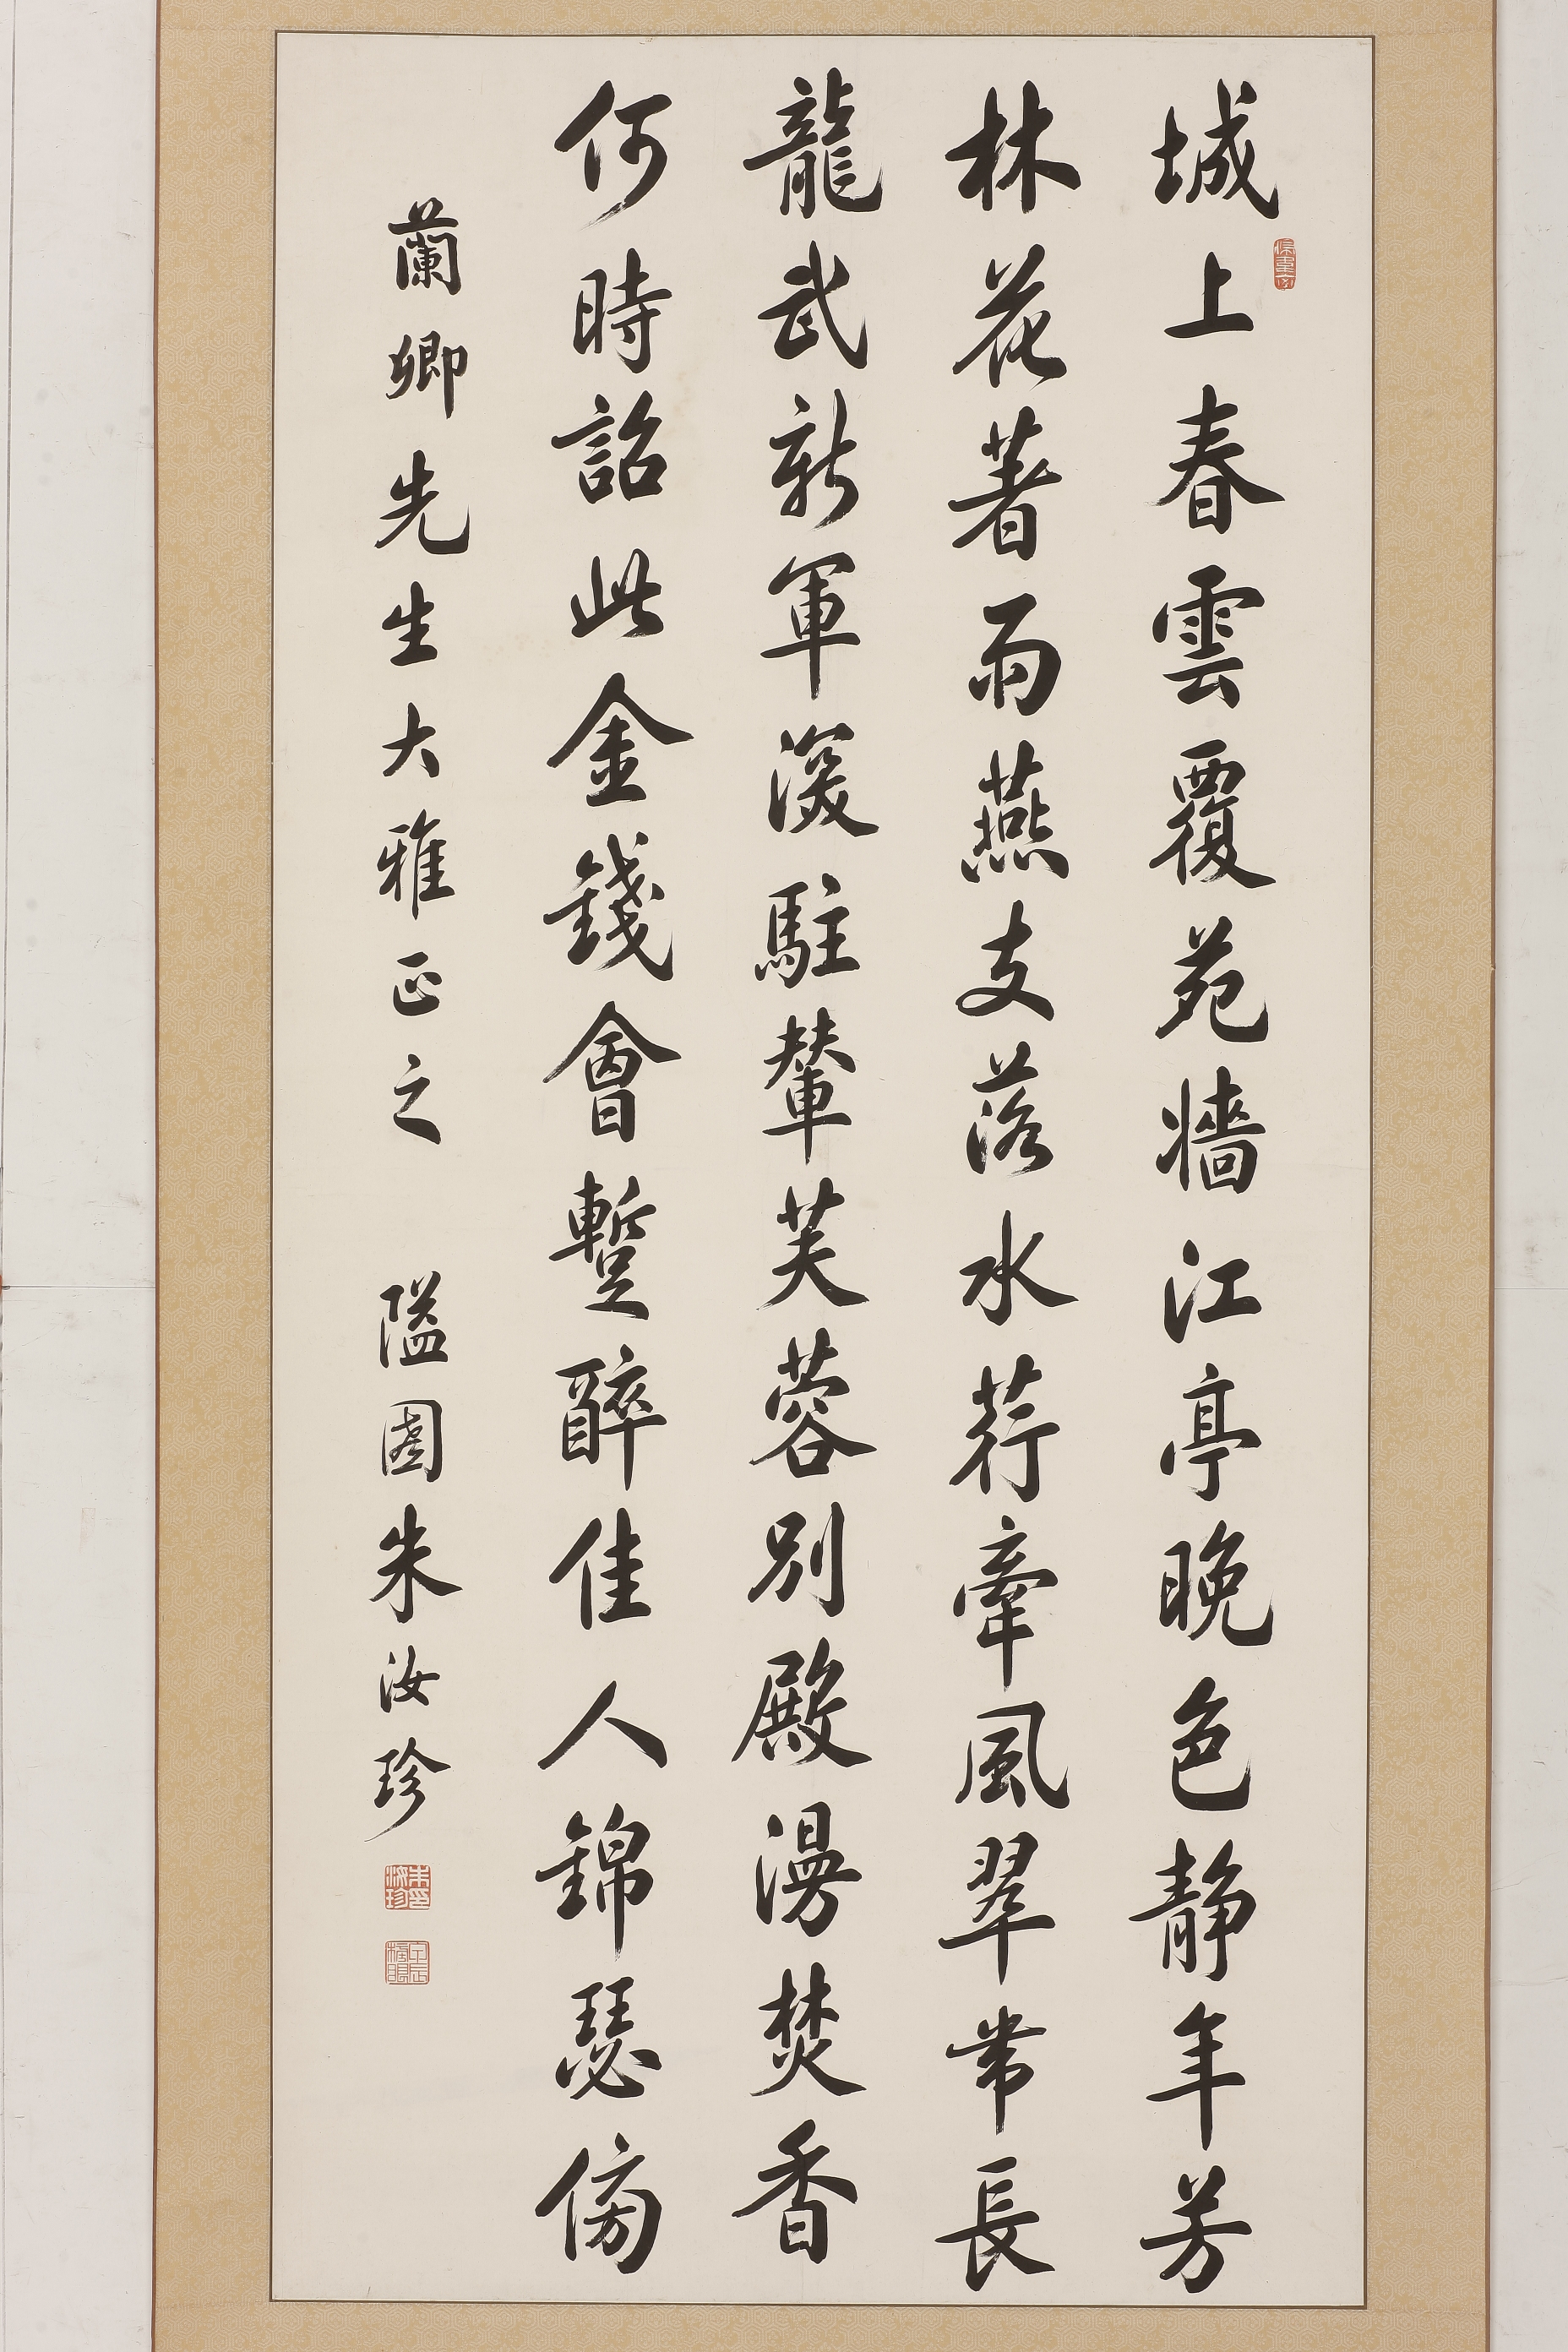 城上春雲覆苑牆江亭晚色靜年芳
林花著雨燕支落水荇牽風翠帶長
龍武新軍深駐輦芙蓉別殿漫焚香
何時詔此金錢會暫醉佳人錦瑟傍
蘭卿先生大雅正之 隘園朱汝珍
朱汝珍印
甲辰榜眼